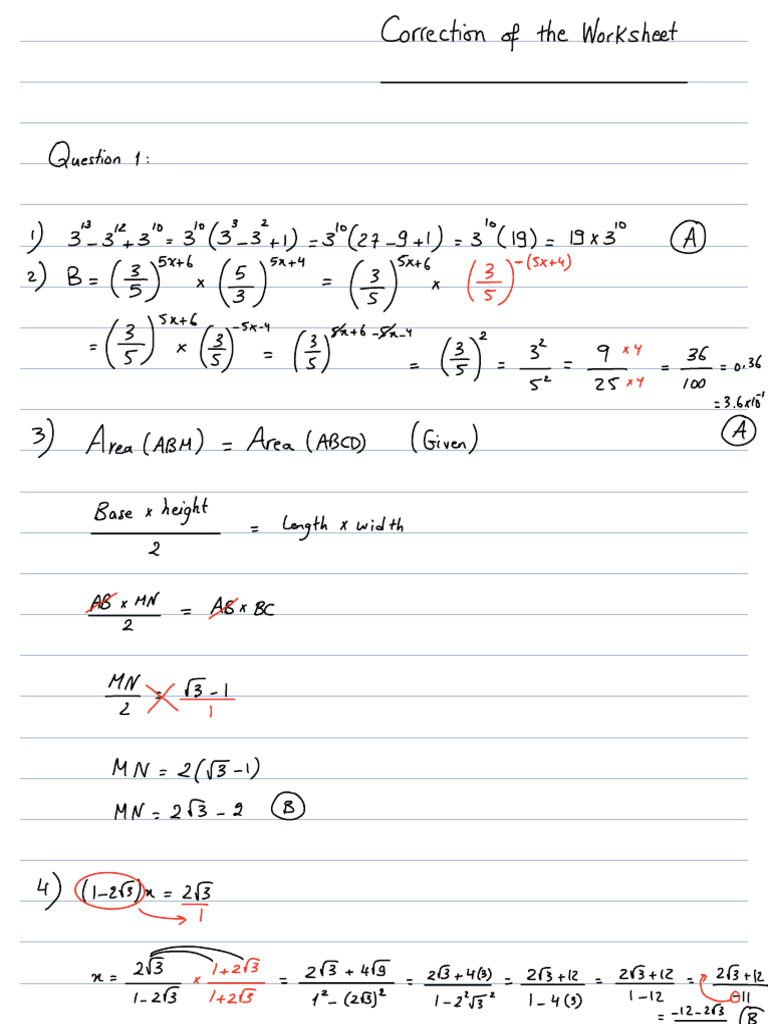 Correction of the Worksheet
Question 1:
1) 3^13 - 3^12 + 3^10 = 3^10 (3^3 - 3^2 + 1) = 3^10 (27 - 9 + 1) = 3^10 (19) = 19 x 3^10 (A)
2) B = (3/5)^(5x+6) x (5/3)^(5x+4) = (3/5)^(5x+6) x (3/5)^-(5x+4)
= (3/5)^(5x+6) x (3/5)^(-5x-4) = (3/5)^(5x+6-5x-4) = (3/5)^2 = 3^2/5^2 = 9 x 4/25 x 4 = 36/100 = 0.36
= 3.6x10^-1
(A)
3) Area (ABM) = Area (ABCD) (Given)
Base x height / 2 = Length x width
AB x MN / 2 = AB x BC
MN/2 = √3 - 1 / 1
MN = 2(√3 - 1)
MN = 2√3 - 2 (B)
4) (1 - 2√3)x = 2√3 / 1
x = 2√3 / 1 - 2√3 x 1 + 2√3 / 1 + 2√3 = 2√3 + 4√9 / 1^2 - (2√3)^2 = 2√3 + 4(3) / 1 - 2^2√3^2 = 2√3 + 12 / 1 - 4(3) = 2√3 + 12 / 1 - 12 = 2√3 + 12 / -11
= -12 - 2√3 (B)